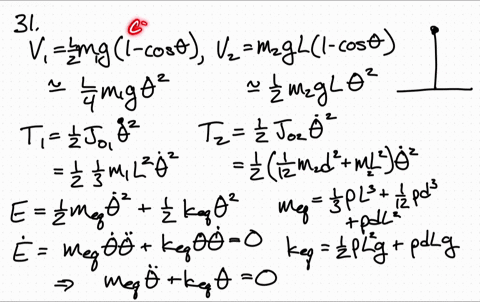 31.
V₁ = ½m₁g(1-cosθ), V₂ = m₂gL(1-cosθ)
≃ L/4 m₁gθ² ≃ ½ m₂gLθ²
T₁ = ½J₀₁θ̇² T₂ = ½J₀₂θ̇²
= ½ ⅓ m₁L²θ̇² = ½(1/12 m₂d² + m₂L²)θ̇²
E = ½m_eq θ̇² + ½ k_eq θ² m_eq = ⅓ρL³ + 1/12 ρd³
+ ρdL²
Ė = m_eq θ̇θ̈ + k_eq θθ̇ = 0 k_eq = ½ρL²g + ρdLg
⇒ m_eq θ̈ + k_eq θ = 0